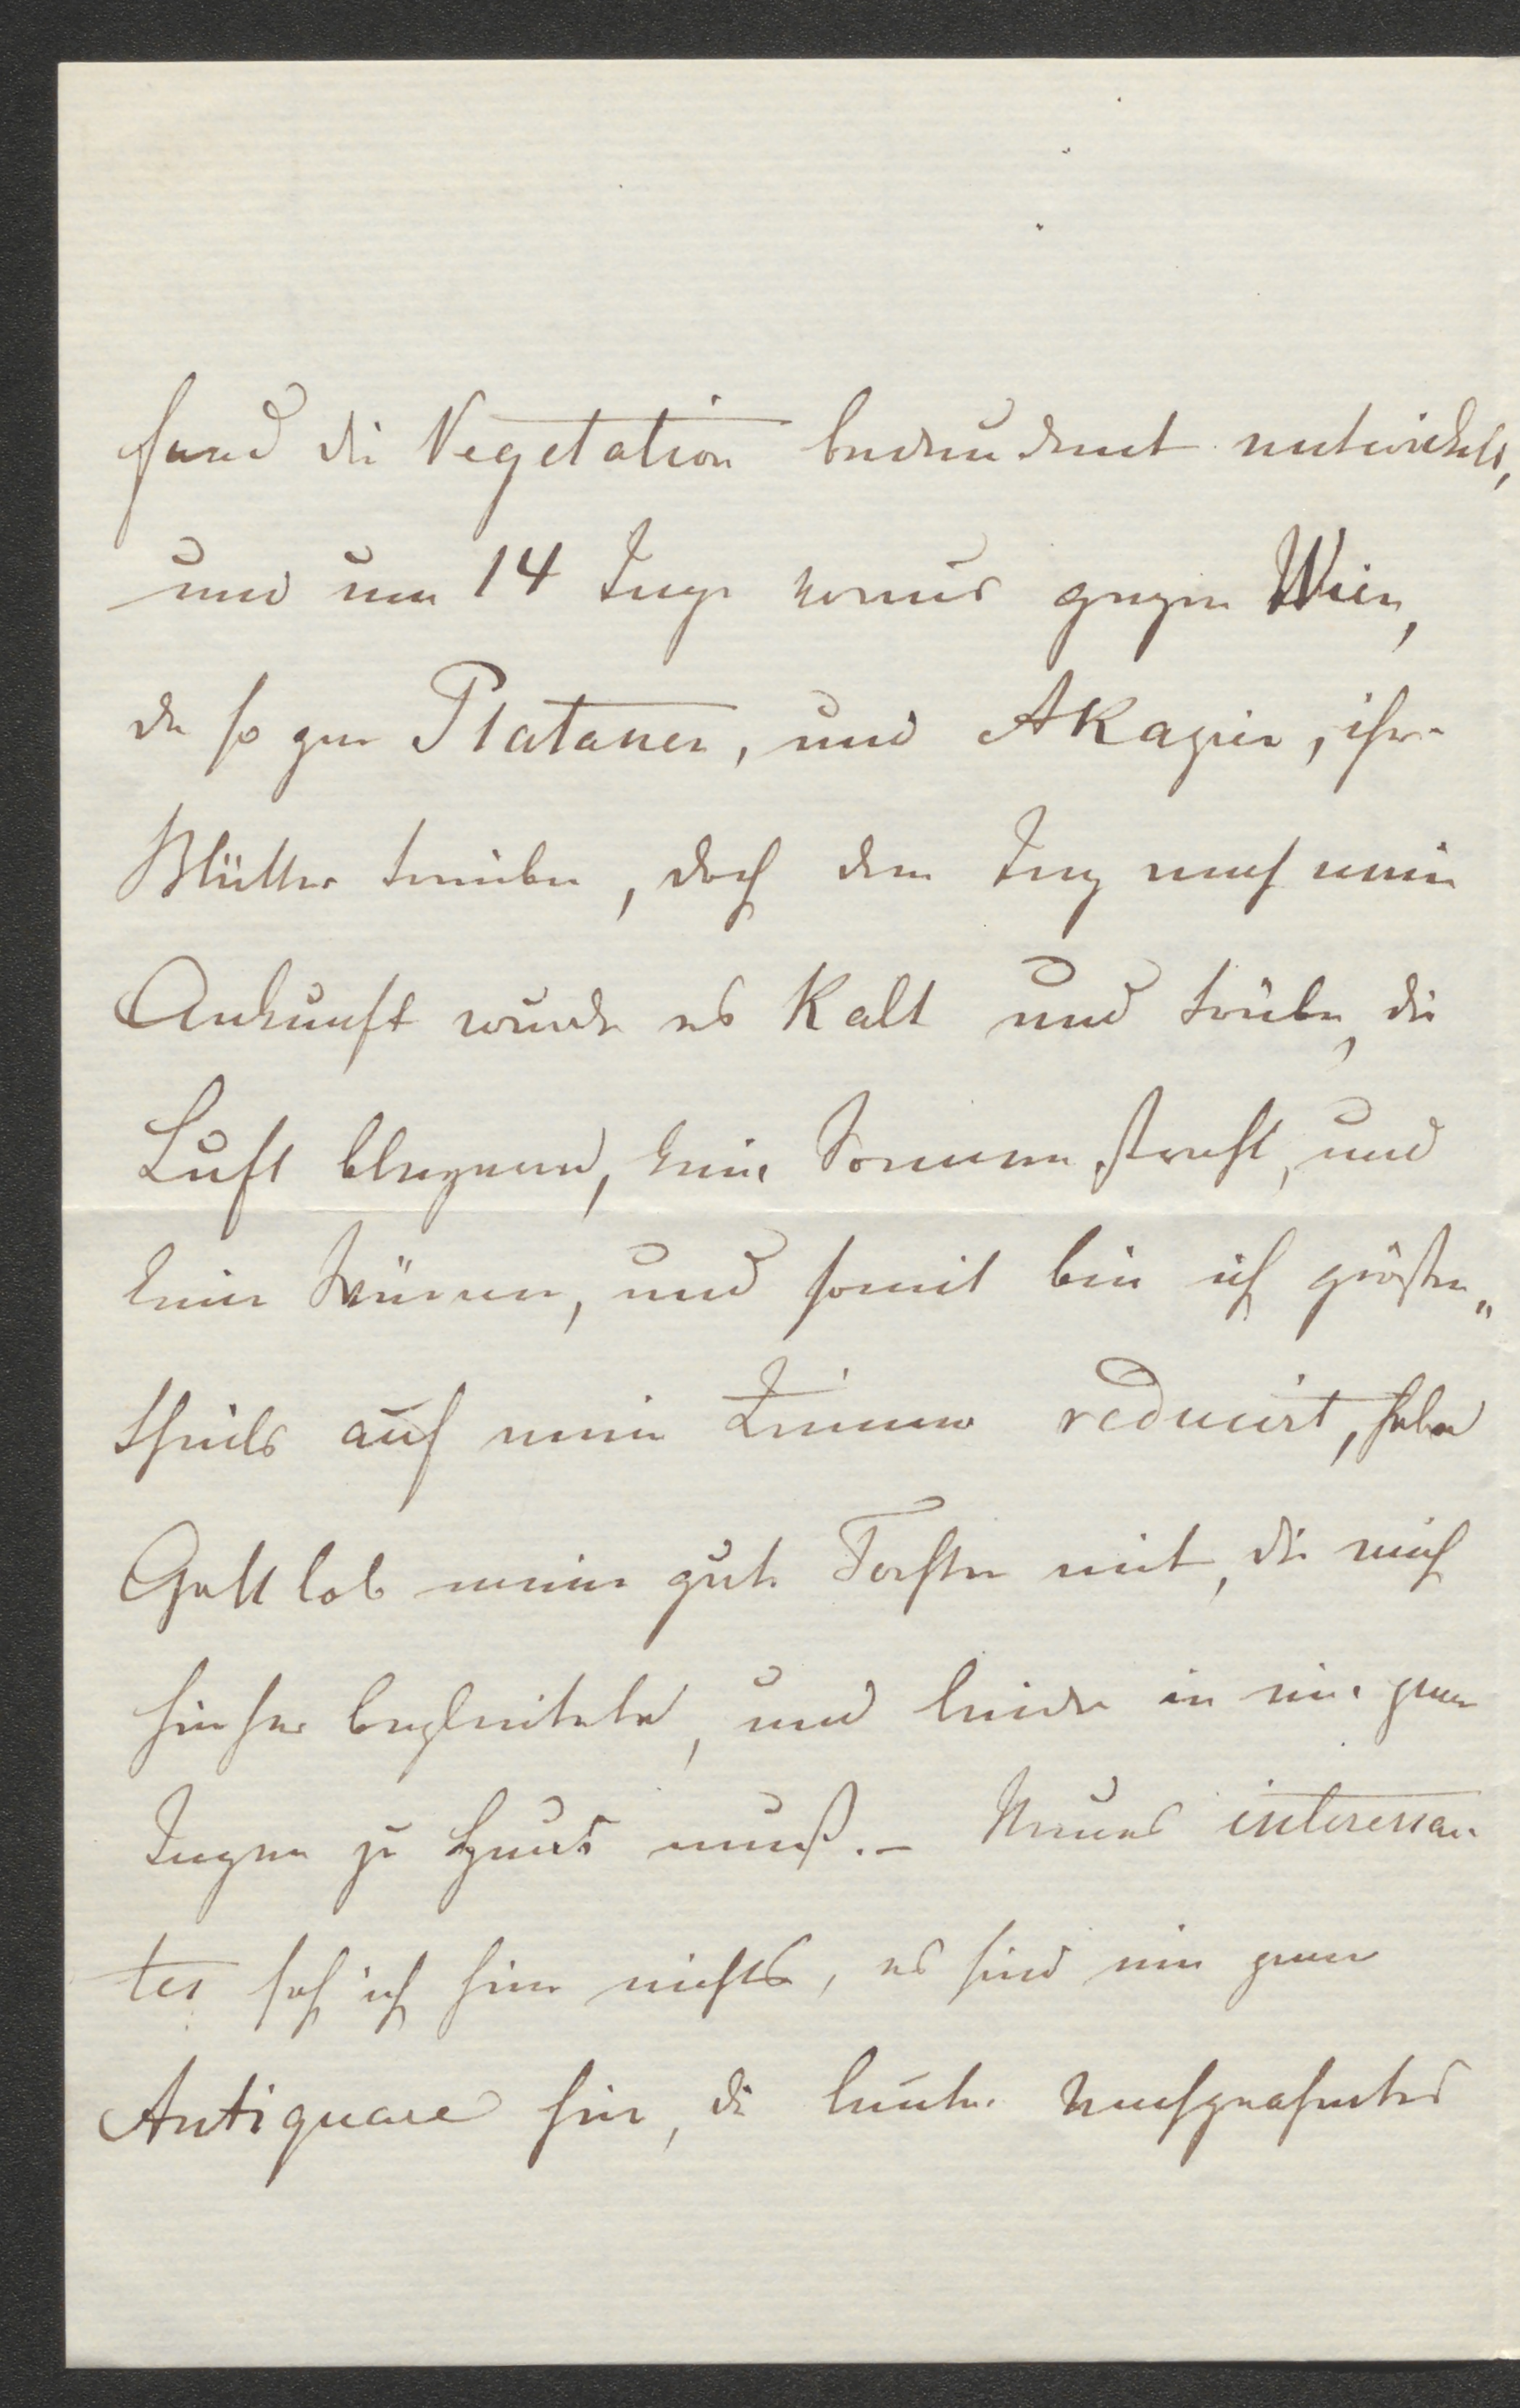 fand die Vegetation bedeutent entwickelt,
und um 14 Tage voraus gegen Wien,
da so gar Platanen, und Akazien, ihre
Blätter treiben, doch den Tag nach meiner
Ankunft wurde es kalt und trübe, die
Luft blasend, keine Sonnen strahl, und
keine Wärme, und somit bin ich größten„
theils auf mein Zimmer reducirt, habe
Gott lob meine gute Tochter mit, die mich
hierher begleitete, und leider in eine paar
Tagen zu Haus muß. – Neues interessan
tes sah ich hier nichts, es sind ein paar
Antiquare hier, die lauter Nachgeahmtes